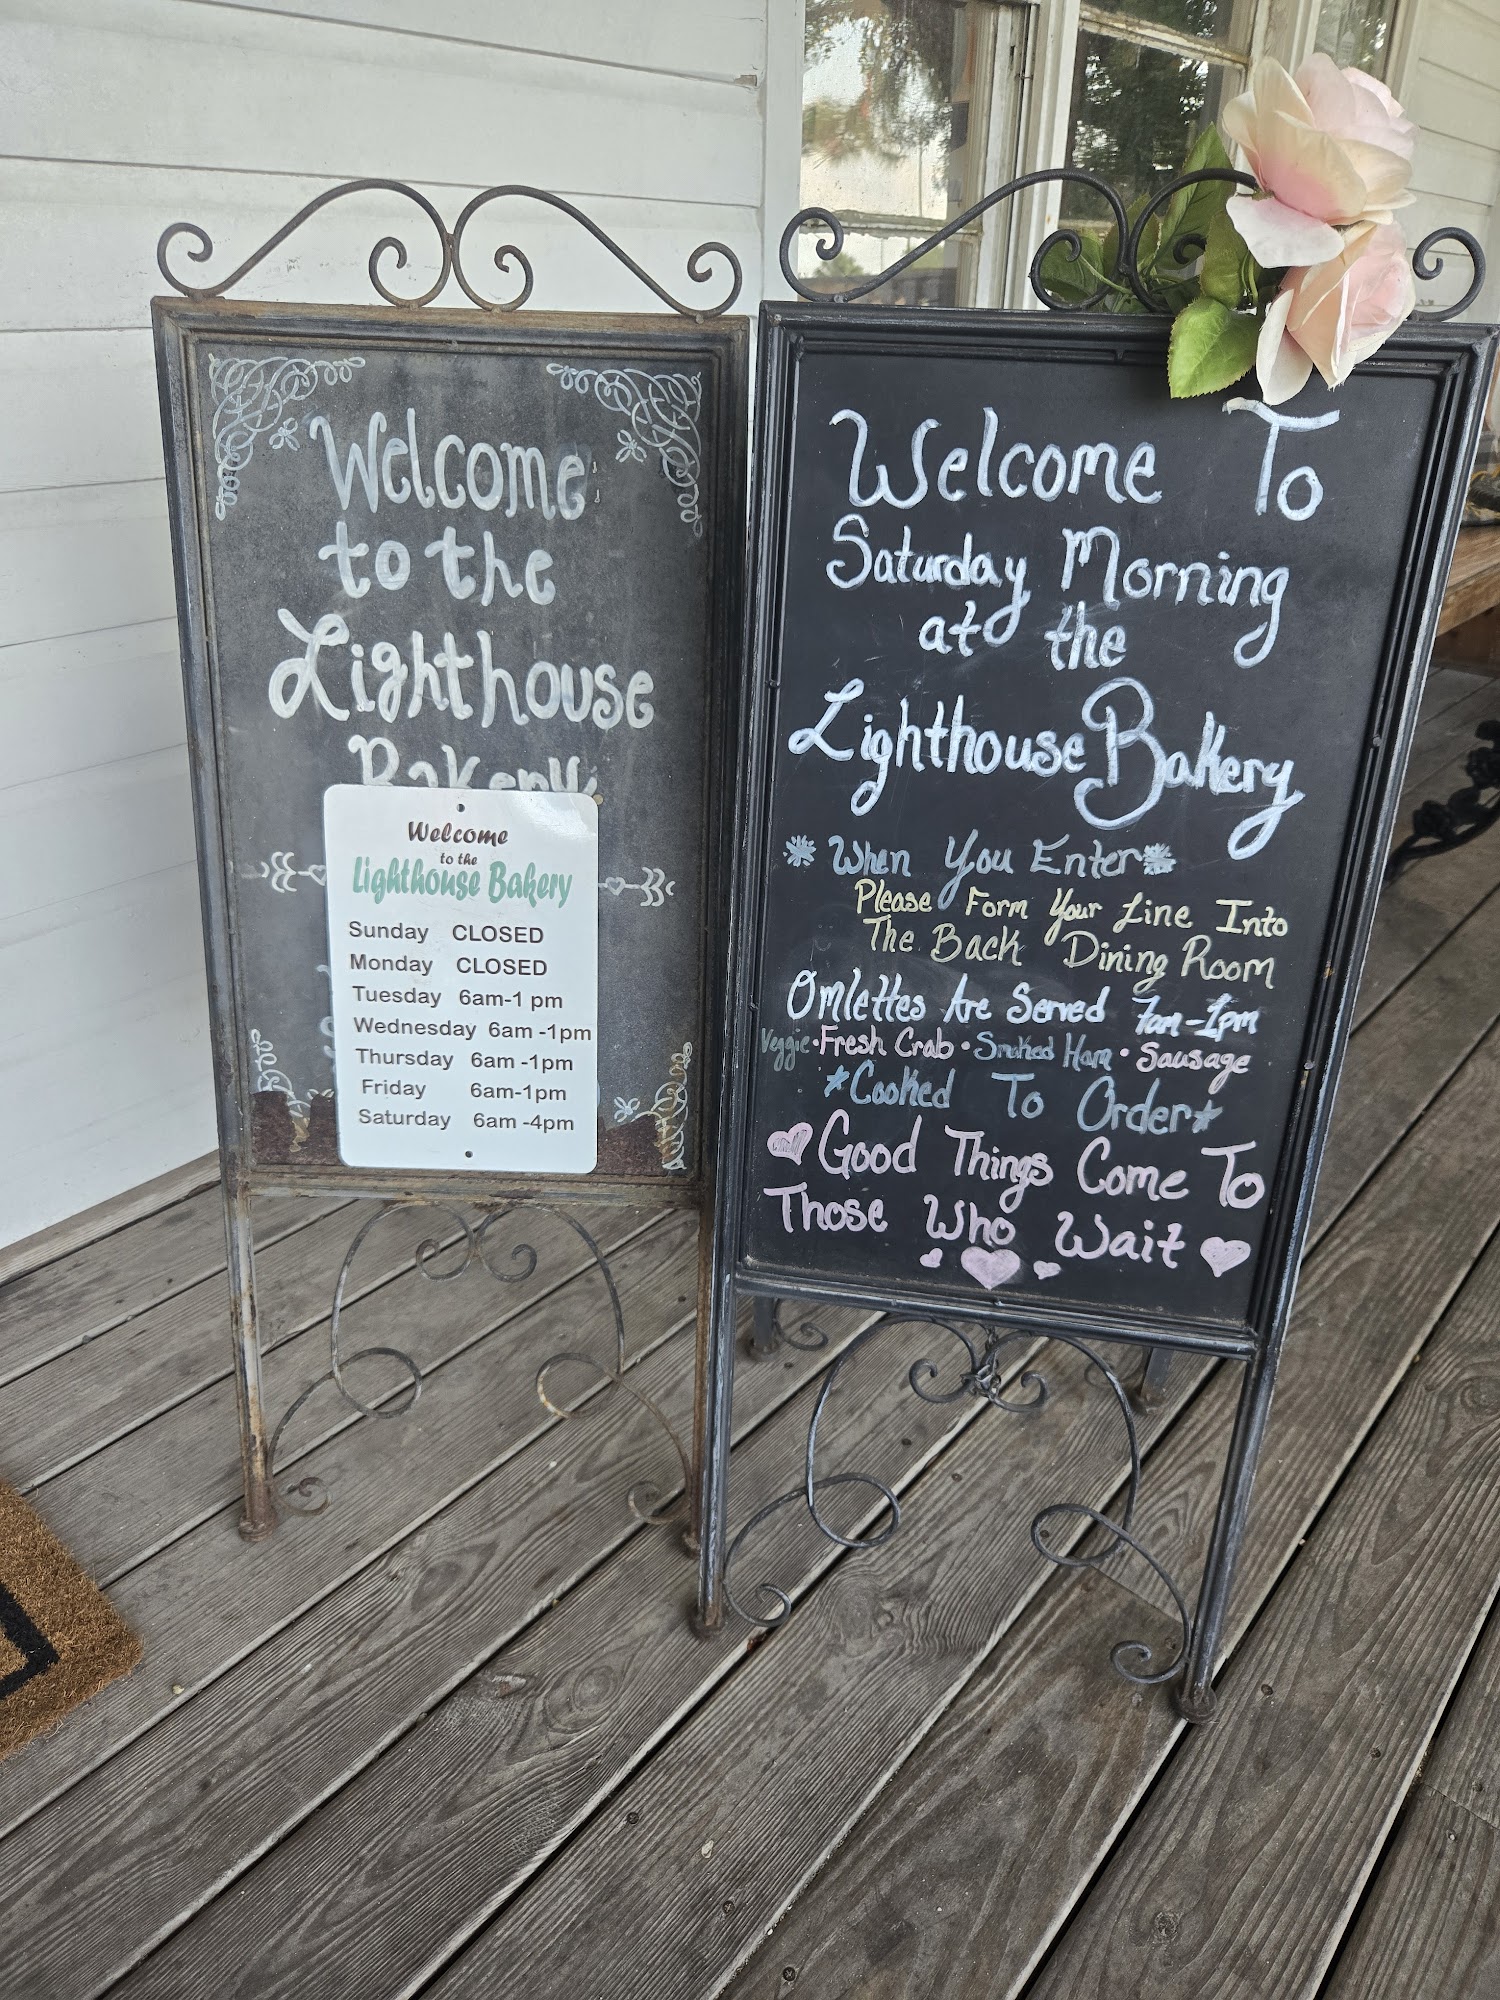 Welcome
to the
Lighthouse
Bakery
Welcome
to the
Lighthouse Bakery
Sunday CLOSED
Monday CLOSED
Tuesday 6am-1 pm
Wednesday 6am -1pm
Thursday 6am -1pm
Friday 6am-1pm
Saturday 6am -4pm
Welcome To
Saturday Morning
at the
Lighthouse Bakery
*When You Enter*
Please Form Your Line Into
The Back Dining Room
Omlettes Are Served 7am-1pm
Veggie•Fresh Crab•Smoked Ham•Sausage
*Cooked To Order*
Good Things Come To
Those Who Wait